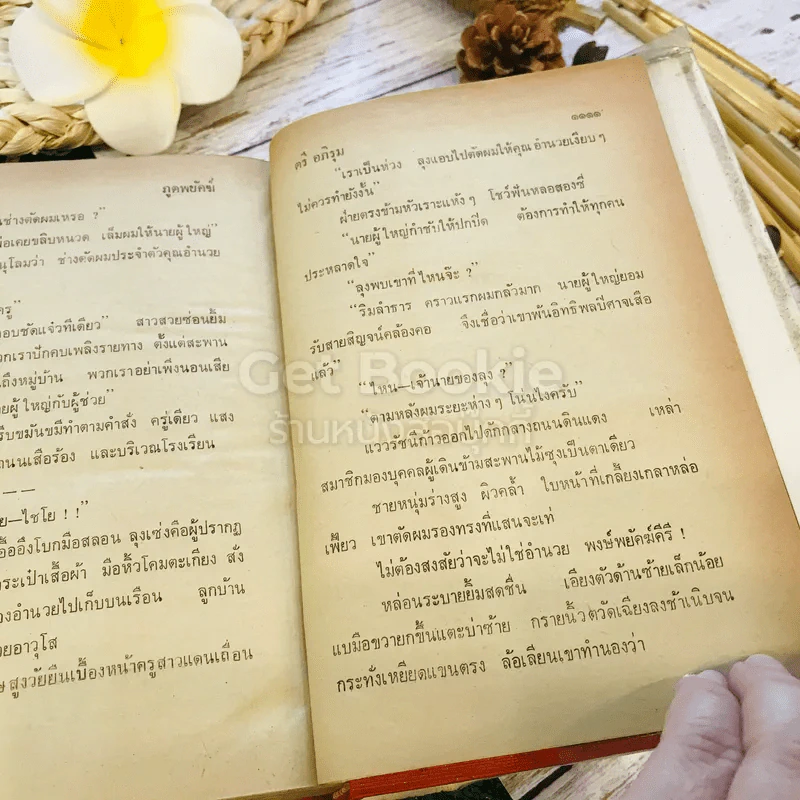 ภูตพยัคฆ์
นช่างตัดผมเหรอ ?”
อเคยขลิบหนวด เล็มผมให้นายผู้ใหญ่”
นุโลมว่า ช่างตัดผมประจำตัวคุณอำนวย
ครู”
อบชัดแจ๋วทีเดียว” สาวสวยซ่อนยิ้ม
วกเราปักคบเพลิงรายทาง ตั้งแต่สะพาน
ถึงหมู่บ้าน พวกเราอย่าเพิ่งนอนเสีย
ยผู้ใหญ่กับผู้ช่วย”
รีบขมันขมีทำตามคำสั่ง ครู่เดียว แสง
ถนนเสือร้อง และบริเวณโรงเรียน
— —
ย—ไชโย ! !”
อื้ออึงโบกมือสลอน ลุงเซ่งคือผู้ปรากฏ
ระเป๋าเสื้อผ้า มือหิ้วโคมตะเกียง สั่ง
องอำนวยไปเก็บบนเรือน ลูกบ้าน
วยอาวุโส
ษ สูงวัยยืนเบื้องหน้าครูสาวแดนเถื่อน
ตรี อภิรุม
๑๑๑๑
“เราเป็นห่วง ลุงแอบไปตัดผมให้คุณอำนวยเงียบๆ
ไม่ควรทำยังงั้น”
ฝ่ายตรงข้ามหัวเราะแห้งๆ โชว์ฟันหลอสองซี่
“นายผู้ใหญ่กำชับให้ปกปิด ต้องการทำให้ทุกคน
ประหลาดใจ”
“ลุงพบเขาที่ไหนจ๊ะ ?”
“ริมลำธาร คราวแรกผมกลัวมาก นายผู้ใหญ่ยอม
รับสายสิญจน์คล้องคอ จึงเชื่อว่าเขาพ้นอิทธิพลปีศาจเสือ
แล้ว”
“ไหน—เจ้านายของลุง ?”
“ตามหลังผมระยะห่างๆ โน่นไงครับ”
แววรัชนีก้าวออกไปดักกลางถนนดินแดง เหล่า
สมาชิกมองบุคคลผู้เดินข้ามสะพานไม้ซุงเป็นตาเดียว
ชายหนุ่มร่างสูง ผิวคล้ำ ใบหน้าที่เกลี้ยงเกลาหล่อ
เฟี้ยว เขาตัดผมรองทรงที่แสนจะเท่
ไม่ต้องสงสัยว่าจะไม่ใช่อำนวย พงษ์พยัคฆ์คีรี !
หล่อนระบายยิ้มสดชื่น เอียงตัวด้านซ้ายเล็กน้อย
แบมือขวายกขึ้นแตะบ่าซ้าย กรายนิ้วตวัดเฉียงลงช้าเนิบจน
กระทั่งเหยียดแขนตรง ล้อเลียนเขาทำนองว่า
Get Bookie